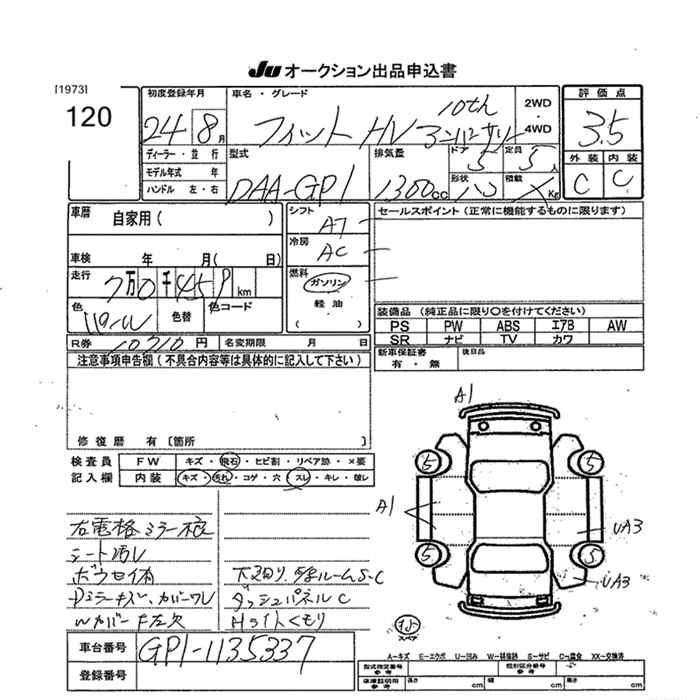 JU オークション出品申込書
[1973]
120
初度登録年月
24年 8月
車名・グレード
10th
フィット HV
2WD
4WD
評価点
3.5
外装 内装
C C
ディーラー・並行
モデル年式 年
ハンドル 左・右
型式
DAA-GP1
排気量
1300cc
ドア
5
定員
5人
形状
積載
Kg
車歴
自家用( )
車検 年 月( 日)
走行
km
色
色替
色コード
シフト
AT
冷房
AC
燃料
ガソリン
軽油
( )
セールスポイント(正常に機能するものに限ります)
装備品(純正品に限り○を付けてください)
PS PW ABS エアB AW
SR ナビ TV カワ
新車保証書
有・無
後日品
R券 10710円
名変期限 月 日
注意事項申告欄(不具合内容等は具体的に記入して下さい)
修復歴 有〔箇所 〕
検査員
記入欄
FW キズ・飛石・ヒビ割・リペア跡・×要
内装 キズ・汚れ・コゲ・穴・スレ・キレ・破レ
右電格ミラー
シート汚レ
ボウセイ有
ダッシュパネルC
Hライトくもり
A1
5
5
5
5
A1
UA3
UA3
スペア
車台番号
GP1-1135337
登録番号
A-キズ E-エクボ U-凹み W-補修跡 S-サビ C-腐食 XX-交換済
型式指定番号
参考
類別区分番号
参考
車庫証明用
参考
長さ cm
幅 cm
高さ cm